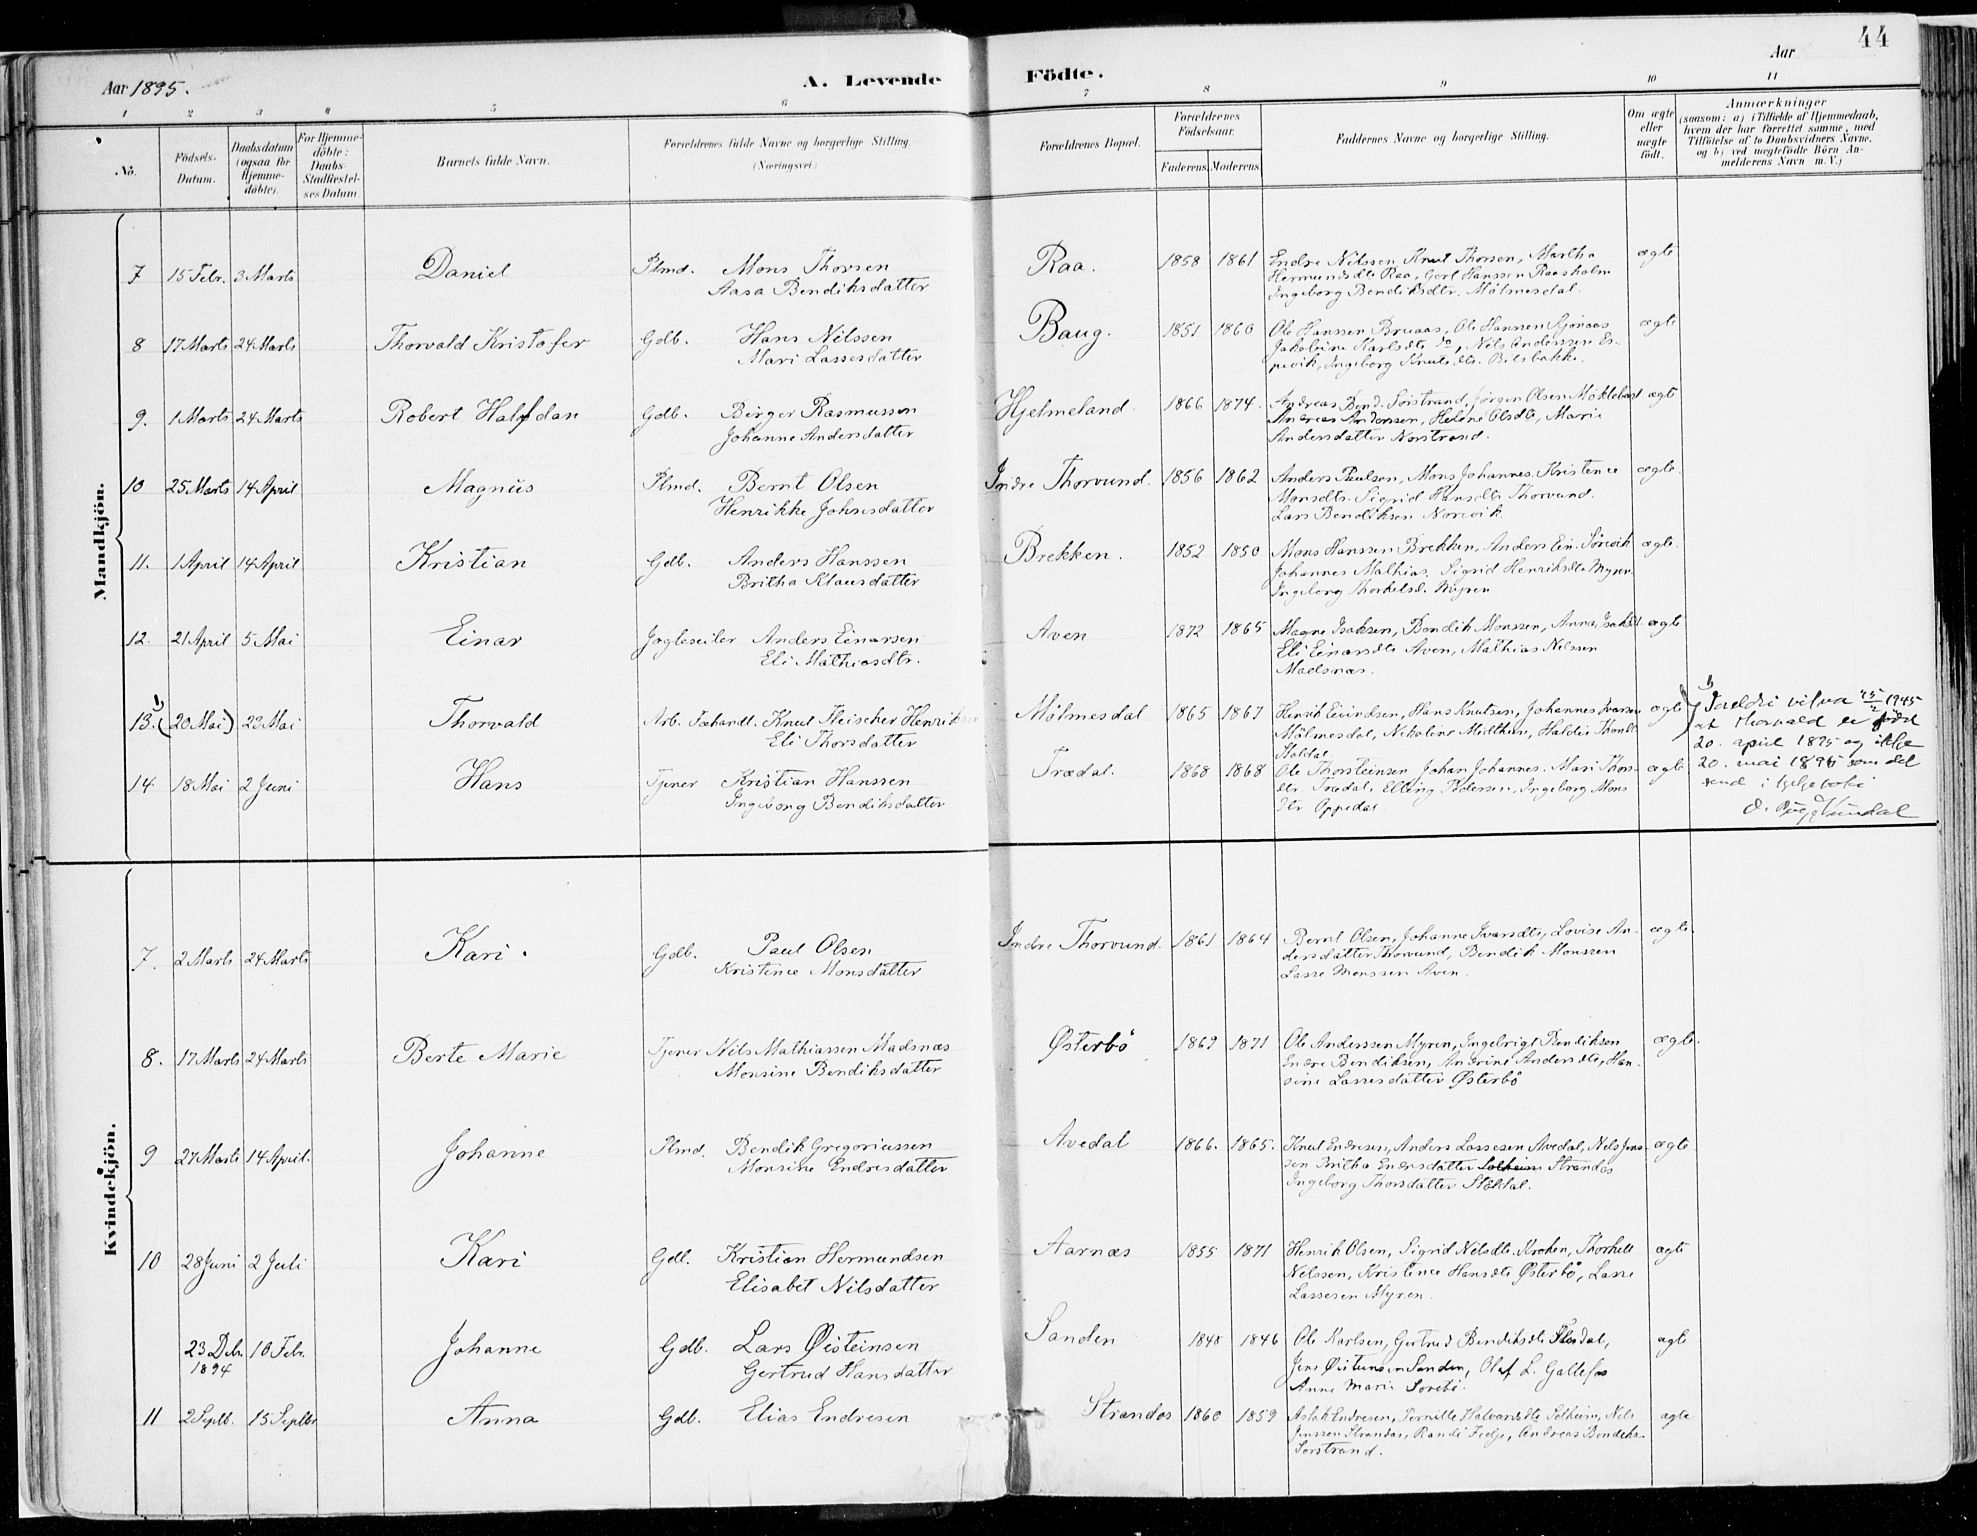 44
Aar 1895.
A. Levende
Födte.
Aar
1 2 3 4 5 6 7 8 9 10 11
No.
Födsels-Datum.
Daabsdatum (ogsaa for Hjemme-döbte).
For Hjemme-döbte: Daabs-Stadfæstel-ses Datum
Barnets fulde Navn.
Forældrenes fulde Navne og borgerlige Stilling.
(Næringsvei.)
Forældrenes Bopæl.
Forældrenes Födselsaar.
Faderens. Moderens.
Faddernes Navne og borgerlige Stilling.
Om ægte eller uægte födt.
Anmærkninger
(saasom: a) i Tilfælde af Hjemmedaab,
hvem der har forrettet samme, med
Tilföielse af to Daabsvidners Navne.
og b) ved uægtefödte Börn An-
melderens Navn m. V.)
Mandkjön.
7 15 Febr. 3 Marts Daniel Plmd. Mons Thorsen Raa. 1858 1861 Endre Nilssen, Knut Thorsen, Martha ægte
Aasa Bendiksdatter Hermundsdtr Raa, Gert Hanssen Raasholm
Ingeborg Bendiksdtr. Mølmesdal.
8 17 Marts 24 Marts Thorvald Kristofer Gdb. Hans Nilssen Baug. 1851 1860 Ole Hanssen Bruaas, Ole Hannen ægte
Mari Lassesdatter Jakobine Karlsdtr do, Nils Anderssen Es-
pevik, Ingeborg Knutsdtr. Bilsbakke.
9. 1 Marts 24 Marts Robert Halfdan Gdb. Birger Rasmussen Hjelmeland. 1866 1874. Andreas Bend. Sørstrand, Jørgen Olsen Møklebust ægte
Johanne Andersdatter Andreas Anderssen, Helene Olsdtr, Marie
Andersdatter Norstrand.
10 25 Marts 14 April Magnus Plmd. Bernt Olsen Indre Thorvund. 1856 1862 Anders Paulsen, Mons Johannes. Kristence ægte.
Henrikke Johnsdatter Monsdtr. Sigrid Hansdtr Thorvund.
Lars Bendiksen Norevik.
11. 1 April 14 April Kristian Gdb. Anders Hanssen Brekken. 1852 1850 Mons Hanssen Brekken, Anders Ein. Sørevik ægte.
Britha Klausdatter Johannes Mathias. Sigrid Henriksdtr Myren
Ingeborg Thorkelsd. Myren
12. 21 April 5 Mai Einar Jagteseiler Anders Einarsen Aven 1872 1865 Magne Isaksen, Bendik Monssen, Anna Isaksd. ægte
Eli Mathiasdtr. Eli Einarsdtr Aven, Mathias Nilssen
Madsnæs.
13. 1) (20 Mai) 23 Mai Thorvald Arb. Fæhandl. Knut Fleischer Henriksen Mølmesdal 1865 1867 Henrik Eivindsen, Hans Knutsen, Johannes Ivarsen ægte
Eli Thorsdatter Mølmesdal, Nikoline Midthun, Haldis
1) 1945
at Thorvald er født
20. april 1895 og ikke
20. mai 1895 som det
14. 18 Mai 2 Juni Hans Tjener Kristian Hanssen Trædal. 1868 1868 Ole Thorsteinsen, Johan Johannes. Mari Thors- ægte
Ingeborg Bendiksdatter dtr. Trædal, Elling Pedersen, Ingeborg Mons
dtr Oppedal.
Kvindekjön.
7. 2 Marts 24 Marts Kari. Gdb. Paul Olsen Indre Thorvund 1861 1864 Bernt Olsen, Johanne Ivarsdtr, Lovise An- ægte.
Kristence Monsdatter dersdatter Thorvund, Bendik Monssen
Lasse Monssen Aven.
8. 17 Marts 24 Marts Berte Marie Tjener Nils Mathiassen Madsnæs Østerbø 1869 1871 Ole Anderssen Myren, Ingebrigt Bendiksen ægte.
Monsine Bendiksdatter Endre Bendiksen, Andrine Andersdtr, Han-
sine Lassesdatter Østerbø
9 27 Marts 14 April. Johanne Plmd. Bendik Gregoriussen Avedal 1866. 1865. Knut Endresen, Anders Lassesen Avedal, Nils Jens- ægte
Monsine Endresdatter sen Britha Endresdatter Solheim Strandos
Ingeborg Thorsdatter Støldal.
10 28 Juni 2 Juli Kari Gdb. Kristian Hermundsen Aarnæs 1855 1871 Henrik Olsen, Sigrid Nilsdtr. Kroken, Thorkell ægte
Elisabet Nilsdatter Nilssen, Kristence Hansdtr Østerbø, Lasse
Lassesen Myren.
23 Debr. 1894 10 Febr. Johanne Gdb. Lars Øisteinsen Sanden 1848 1846 Ole Karlsen, Gertrud Bendiksdtr ægte
Gertrud Hansdatter Jens Øisteinsen Sanden, Olaf L. Gallefos
Anne Marie Sørebø.
11 2 Septb. 15 Septbr Anna Gdb. Elias Endresen Strandos 1860 1859 Aslak Endresen, Pernille Halvardsdtr Solheim, Nils ægte
Jenssen Strandos, Randi Fedje, Andreas Bendiks.
Sørstrand.